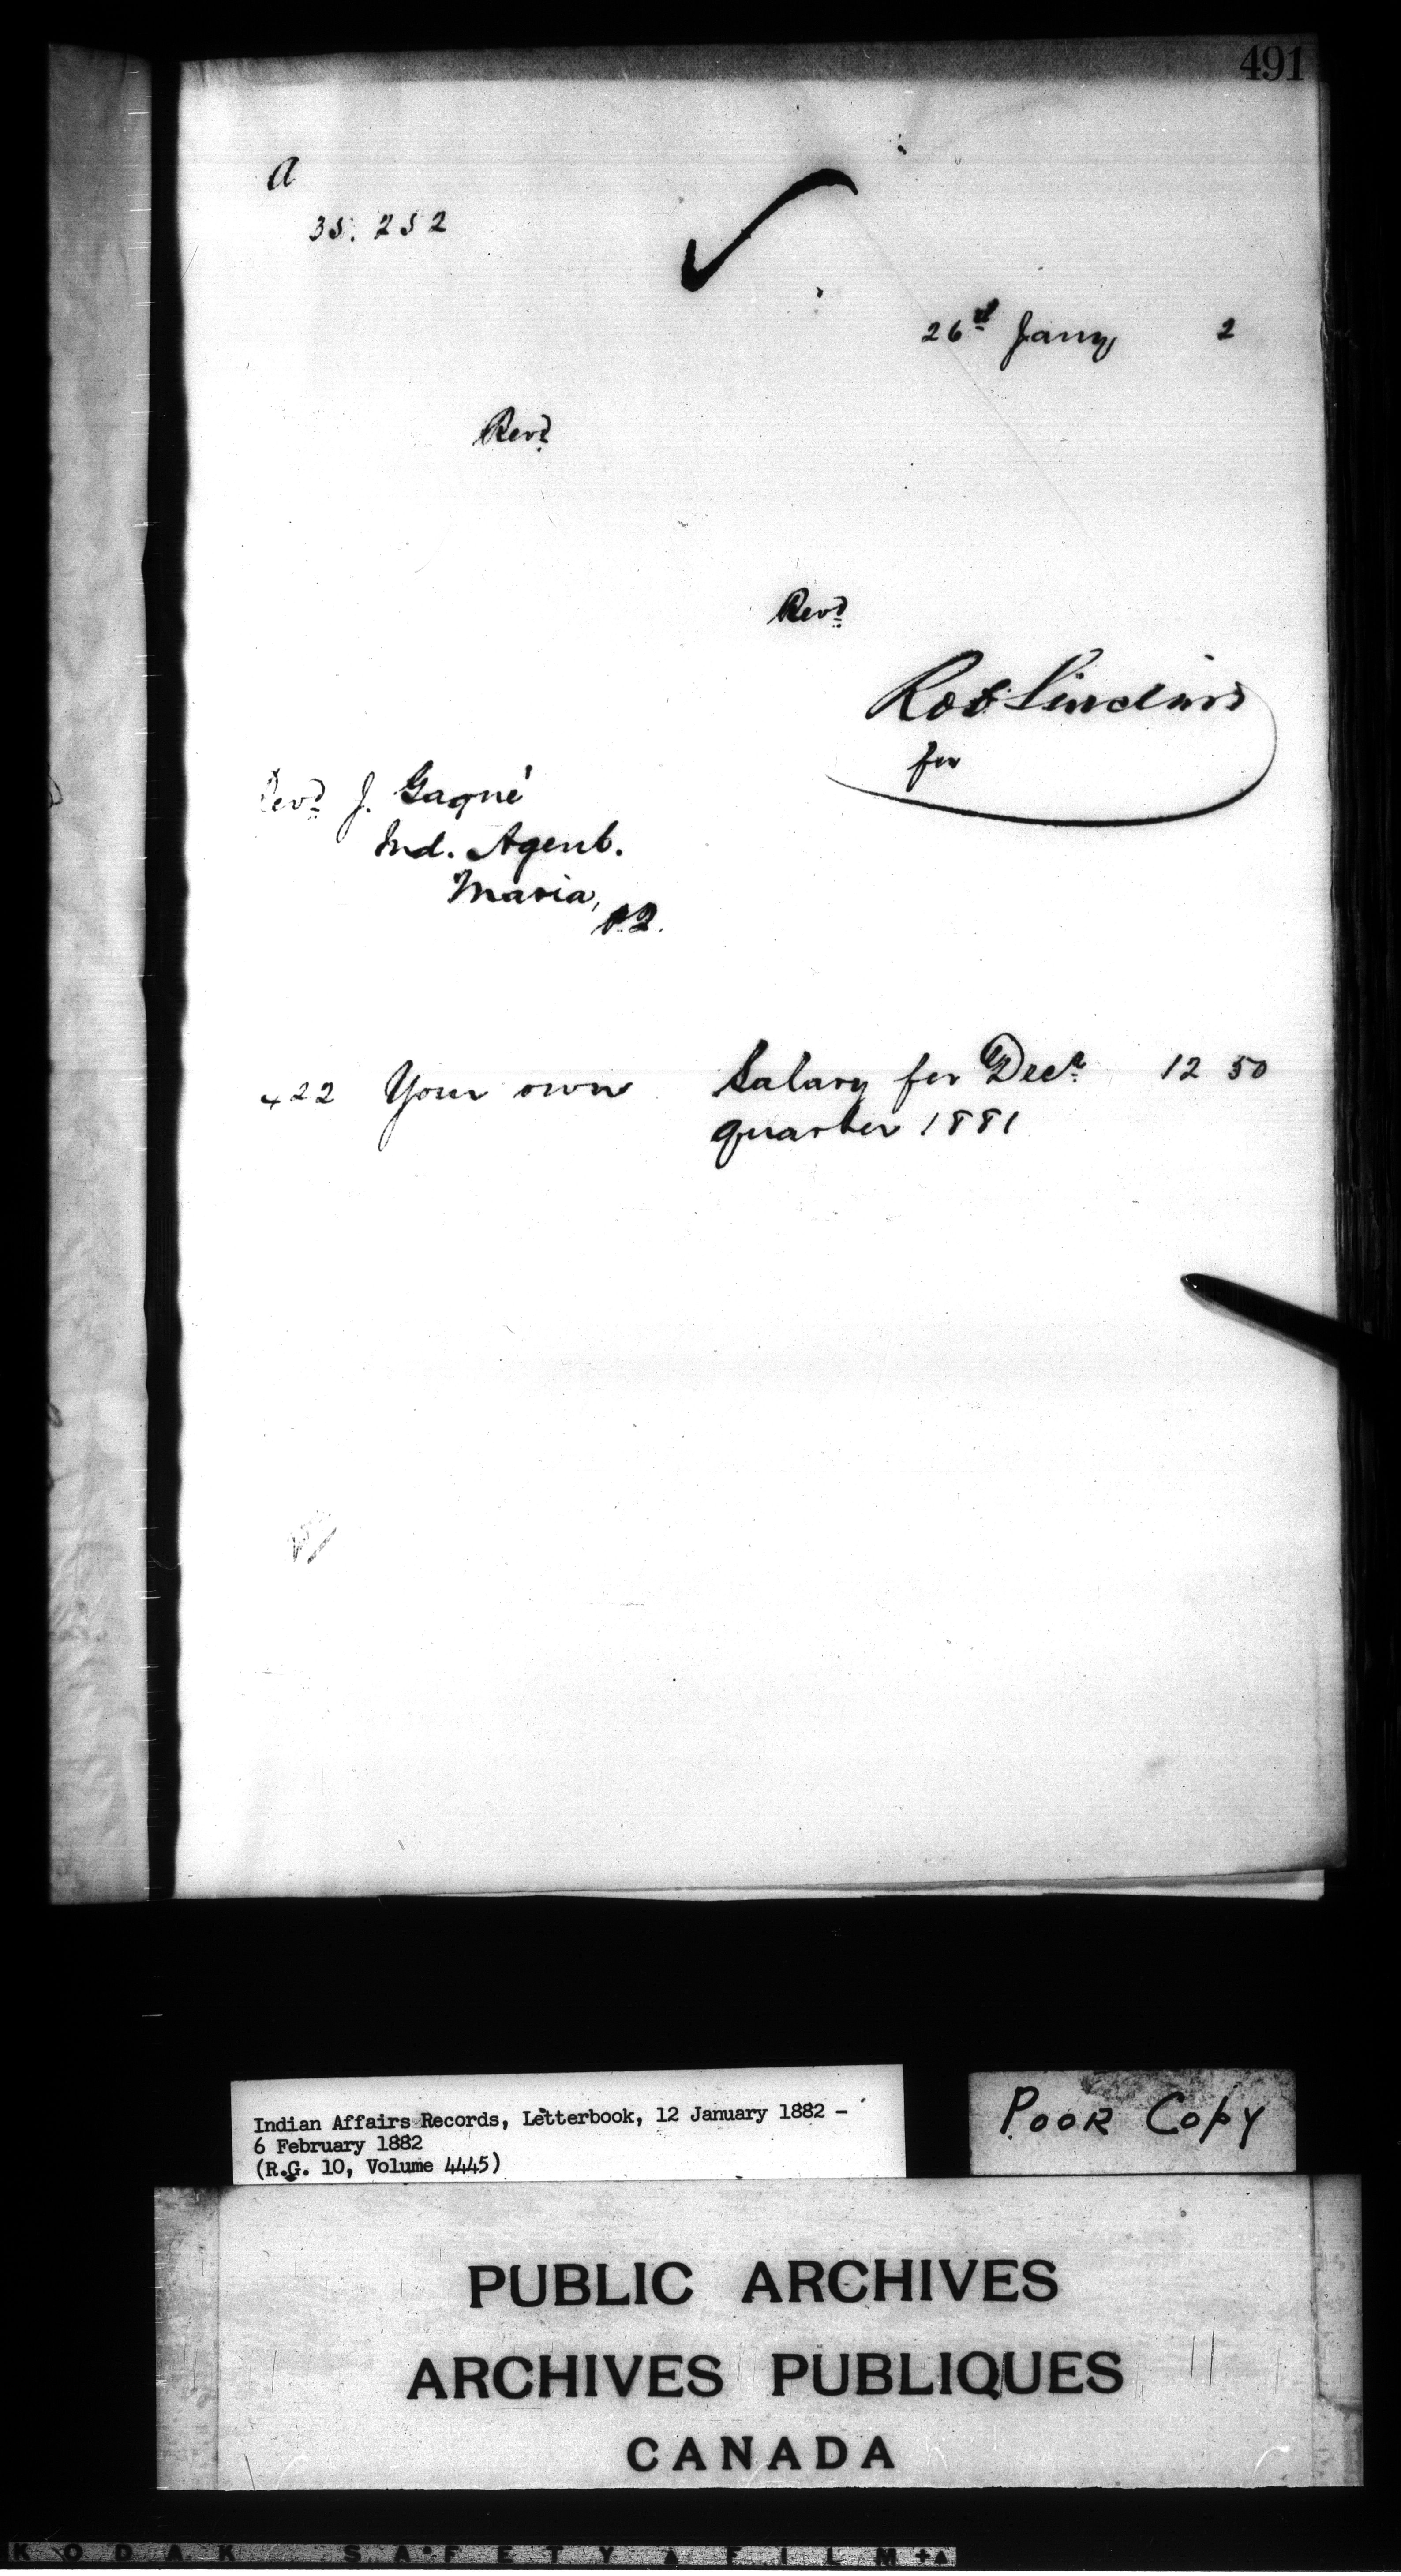 491
a
35.252
26th Jany 2
Revd
Revd
Rob Sinclair
for
Revd J. Gagné
Ind. Agent.
Maria,
P.Q.
422 Your own Salary for Decr 12 50
quarter 1881
Indian Affairs Records, Letterbook, 12 January 1882 -
6 February 1882
(R.G. 10, Volume 4445)
POOR COPY
PUBLIC ARCHIVES
ARCHIVES PUBLIQUES
CANADA
KODAK SAFETY FILM